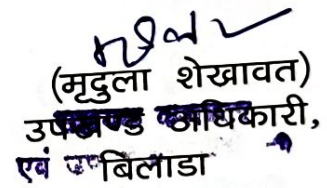 (मृदुला शेखावत)
उपखण्ड अधिकारी,
एवं बिलाडा